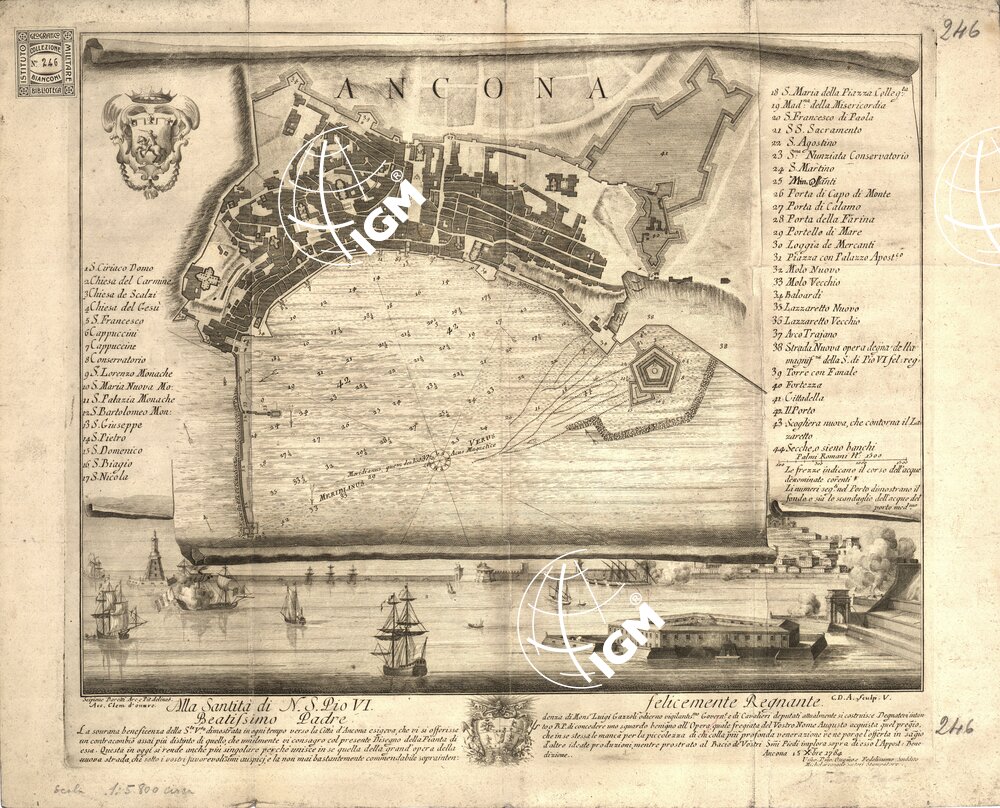 246
ISTITUTO
GEOGRAFICO
MILITARE
COLLEZIONE
N.° 246
BIANCONI
BIBLIOTECA
ANCONA
1 S. Ciriaco Domo
2 Chiesa del Carmine
3 Chiesa de Scalzi
4 Chiesa del Gesù
5 S. Francesco
6 Cappuccini
7 Cappuccine
8 Conservatorio
9 S. Lorenzo Monache
10 S. Maria Nuova Mo:
11 S. Palazia Monache
12 S. Bartolomeo Mon:
13 S. Giuseppe
14 S. Pietro
15 S. Domenico
16 S. Biagio
17 S. Nicola
18 S. Maria della Piazza Colleg.ta
19 Mad.na della Misericordia
20 S. Francesco di Paola
21 SS. Sacramento
22 S. Agostino
23 Nunziata Conservatorio
24 S. Martino
25
26 Porta di Capo di Monte
27 Porta di Calamo
28 Porta della Farina
29 Portello di Mare
30 Loggia de Mercanti
31 Piazza con Palazzo Apost.co
32 Molo Nuovo
33 Molo Vecchio
34 Baloardi
35 Lazzaretto Nuovo
36 Lazzaretto Vecchio
37 Arco Trajano
38 Strada Nuova opera degna della
magnif.za della S. di Pio VI fel: reg.
39 Torre con Fanale
40 Fortezza
41 Cittadella
42 Il Porto
43 Scogliera nuova, che contorna il La
zaretto
44 Secche, o sieno banchi
Palmi Romani N.° 1300
Le frezze indicano il corso dell'acque
denominate corenti
Li numeri seg.ti nel Porto dimostrano il
fondo, o sia lo scandaglio dell'acque del
porto med.mo
VERUS
MERIDIANUS
IGM®
IGM®
Arc. e Pit. delineò
C.D.A. Sculp. V.
Alla Santità di N. S. Pio VI.
felicemente Regnante.
Beatissimo Padre
La sourana beneficenza della S.tà V.ra dimostrata in ogni tempo verso la Città d'Ancona esigeva, che vi si offerisse
un contracambio assai più distinto di quello, che umilmente vi consagro col presente Disegno della Pianta di
essa. Questa in oggi si rende anche più singolare perchè unisce in se quella della grand opera della
nuova strada, che sotto i vostri favorevolissimi auspicj e la non mai bastantemente commendabile sopraïnten:
denza di Mons.r Luigi Gazzoli odierno vigilantis.mo Govern.re e di Cavalieri deputati attualmente si costruisce. Degnatevi intan
to o B.P. di concedere uno sguardo benigno all'Opera, quale fregiata del Vostro Nome Augusto acquista quel pregio,
che in se stessa le manca per la picciolezza di chi colla più profonda venerazione ve ne porge l'offerta in saggio
d'altre ideate produzioni, mentre prostrato al Bacio de' Vostri Smi Piedi implora sopra di esso l'Apost. Bene
dizione.
Ancona 15 Xbre 1784
246
Scala 1:5.800 circa